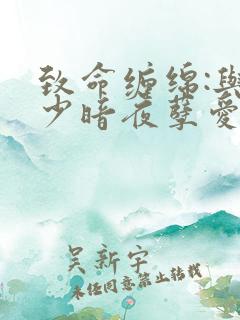 致命缠绵:與
少暗夜孽爱
吴新宇
未经同意禁止转载